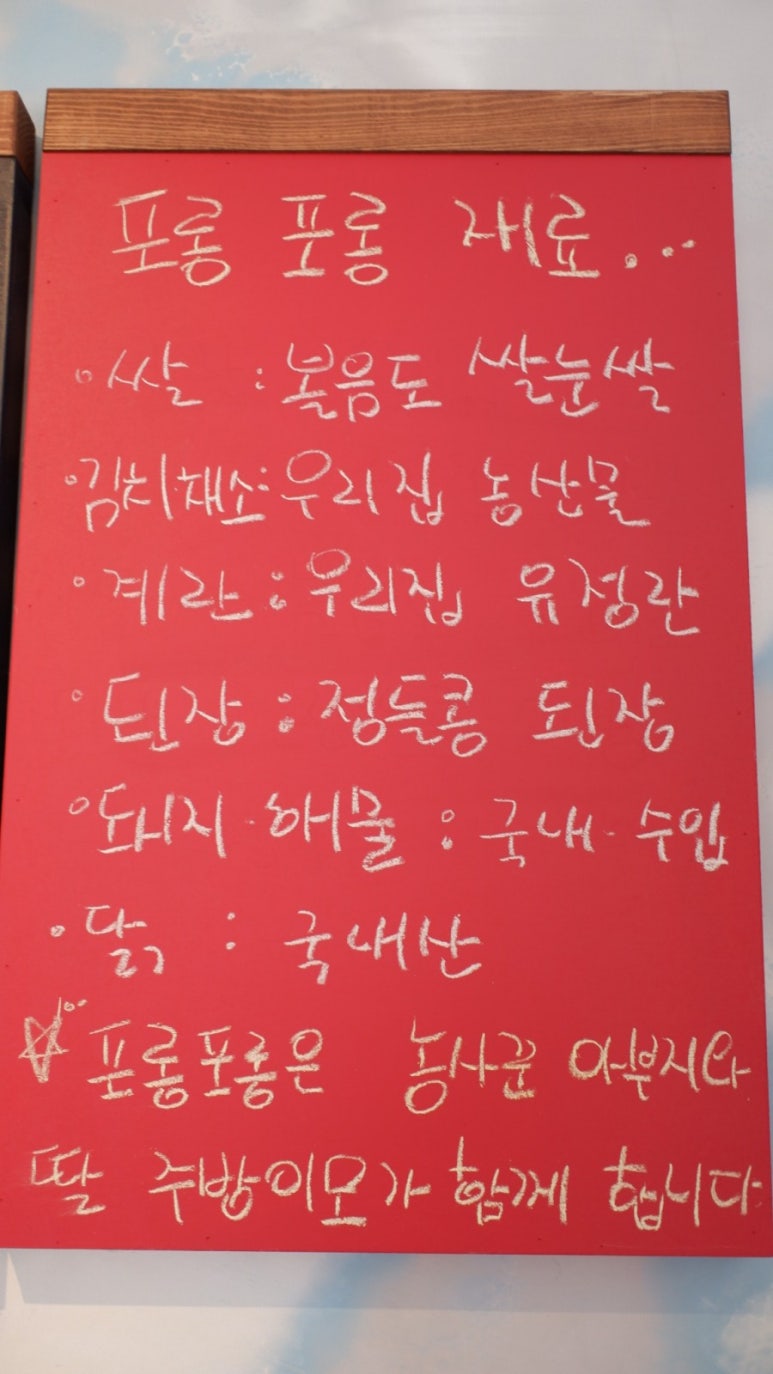 포롱 포롱 재료...
◦쌀 : 볼음도 쌀눈쌀
◦김치·채소: 우리집 농산물
◦계란 : 우리집 유정란
◦된장 : 정들콩 된장
◦돼지·해물 : 국내·수입
◦닭 : 국내산
☆포롱포롱은 농사꾼 아부지와
딸 주방이모가 함께 합니다